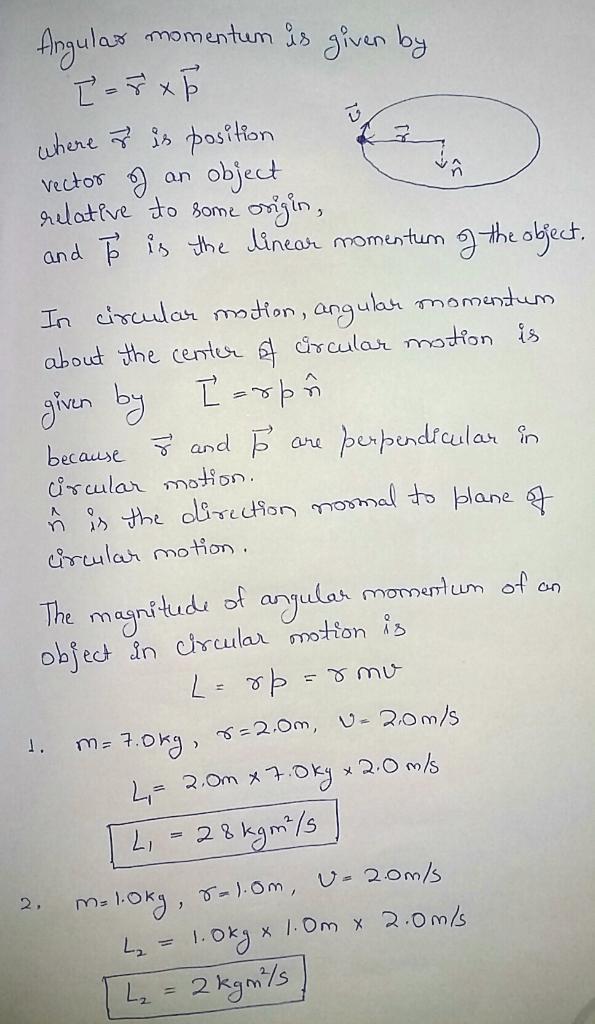 Angular momentum is given by
L⃗ = r⃗ × p⃗
v⃗
r⃗
n̂
where r⃗ is position
vector of an object
relative to some origin,
and p⃗ is the linear momentum of the object.
In circular motion, angular momentum
about the center of circular motion is
given by L⃗ = rp n̂
because r⃗ and p⃗ are perpendicular in
circular motion.
n̂ is the direction normal to plane of
circular motion.
The magnitude of angular momentum of an
object in circular motion is
L = rp = rmv
1. m = 7.0kg, r = 2.0m, v = 2.0m/s
L₁ = 2.0m × 7.0kg × 2.0 m/s
L₁ = 28 kgm²/s
2. m = 1.0kg, r = 1.0m, v = 2.0m/s
L₂ = 1.0kg × 1.0m × 2.0m/s
L₂ = 2 kgm²/s